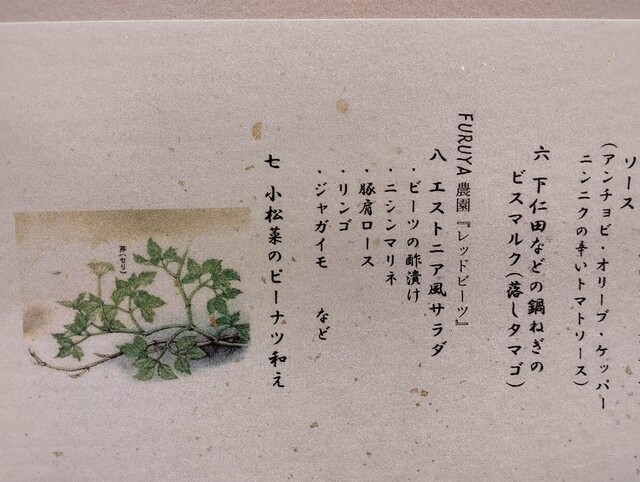 ソース
(アンチョビ・オリーブ・ケッパー
ニンニクの辛いトマトソース)
六 下仁田などの鍋ねぎの
ビスマルク(落しタマゴ)
FURUYA 農園『レッドビーツ』
八 エストニア風サラダ
・ビーツの酢漬け
・ニシンマリネ
・豚肩ロース
・リンゴ
・ジャガイモ など
七 小松菜のピーナツ和え
芹(セリ)